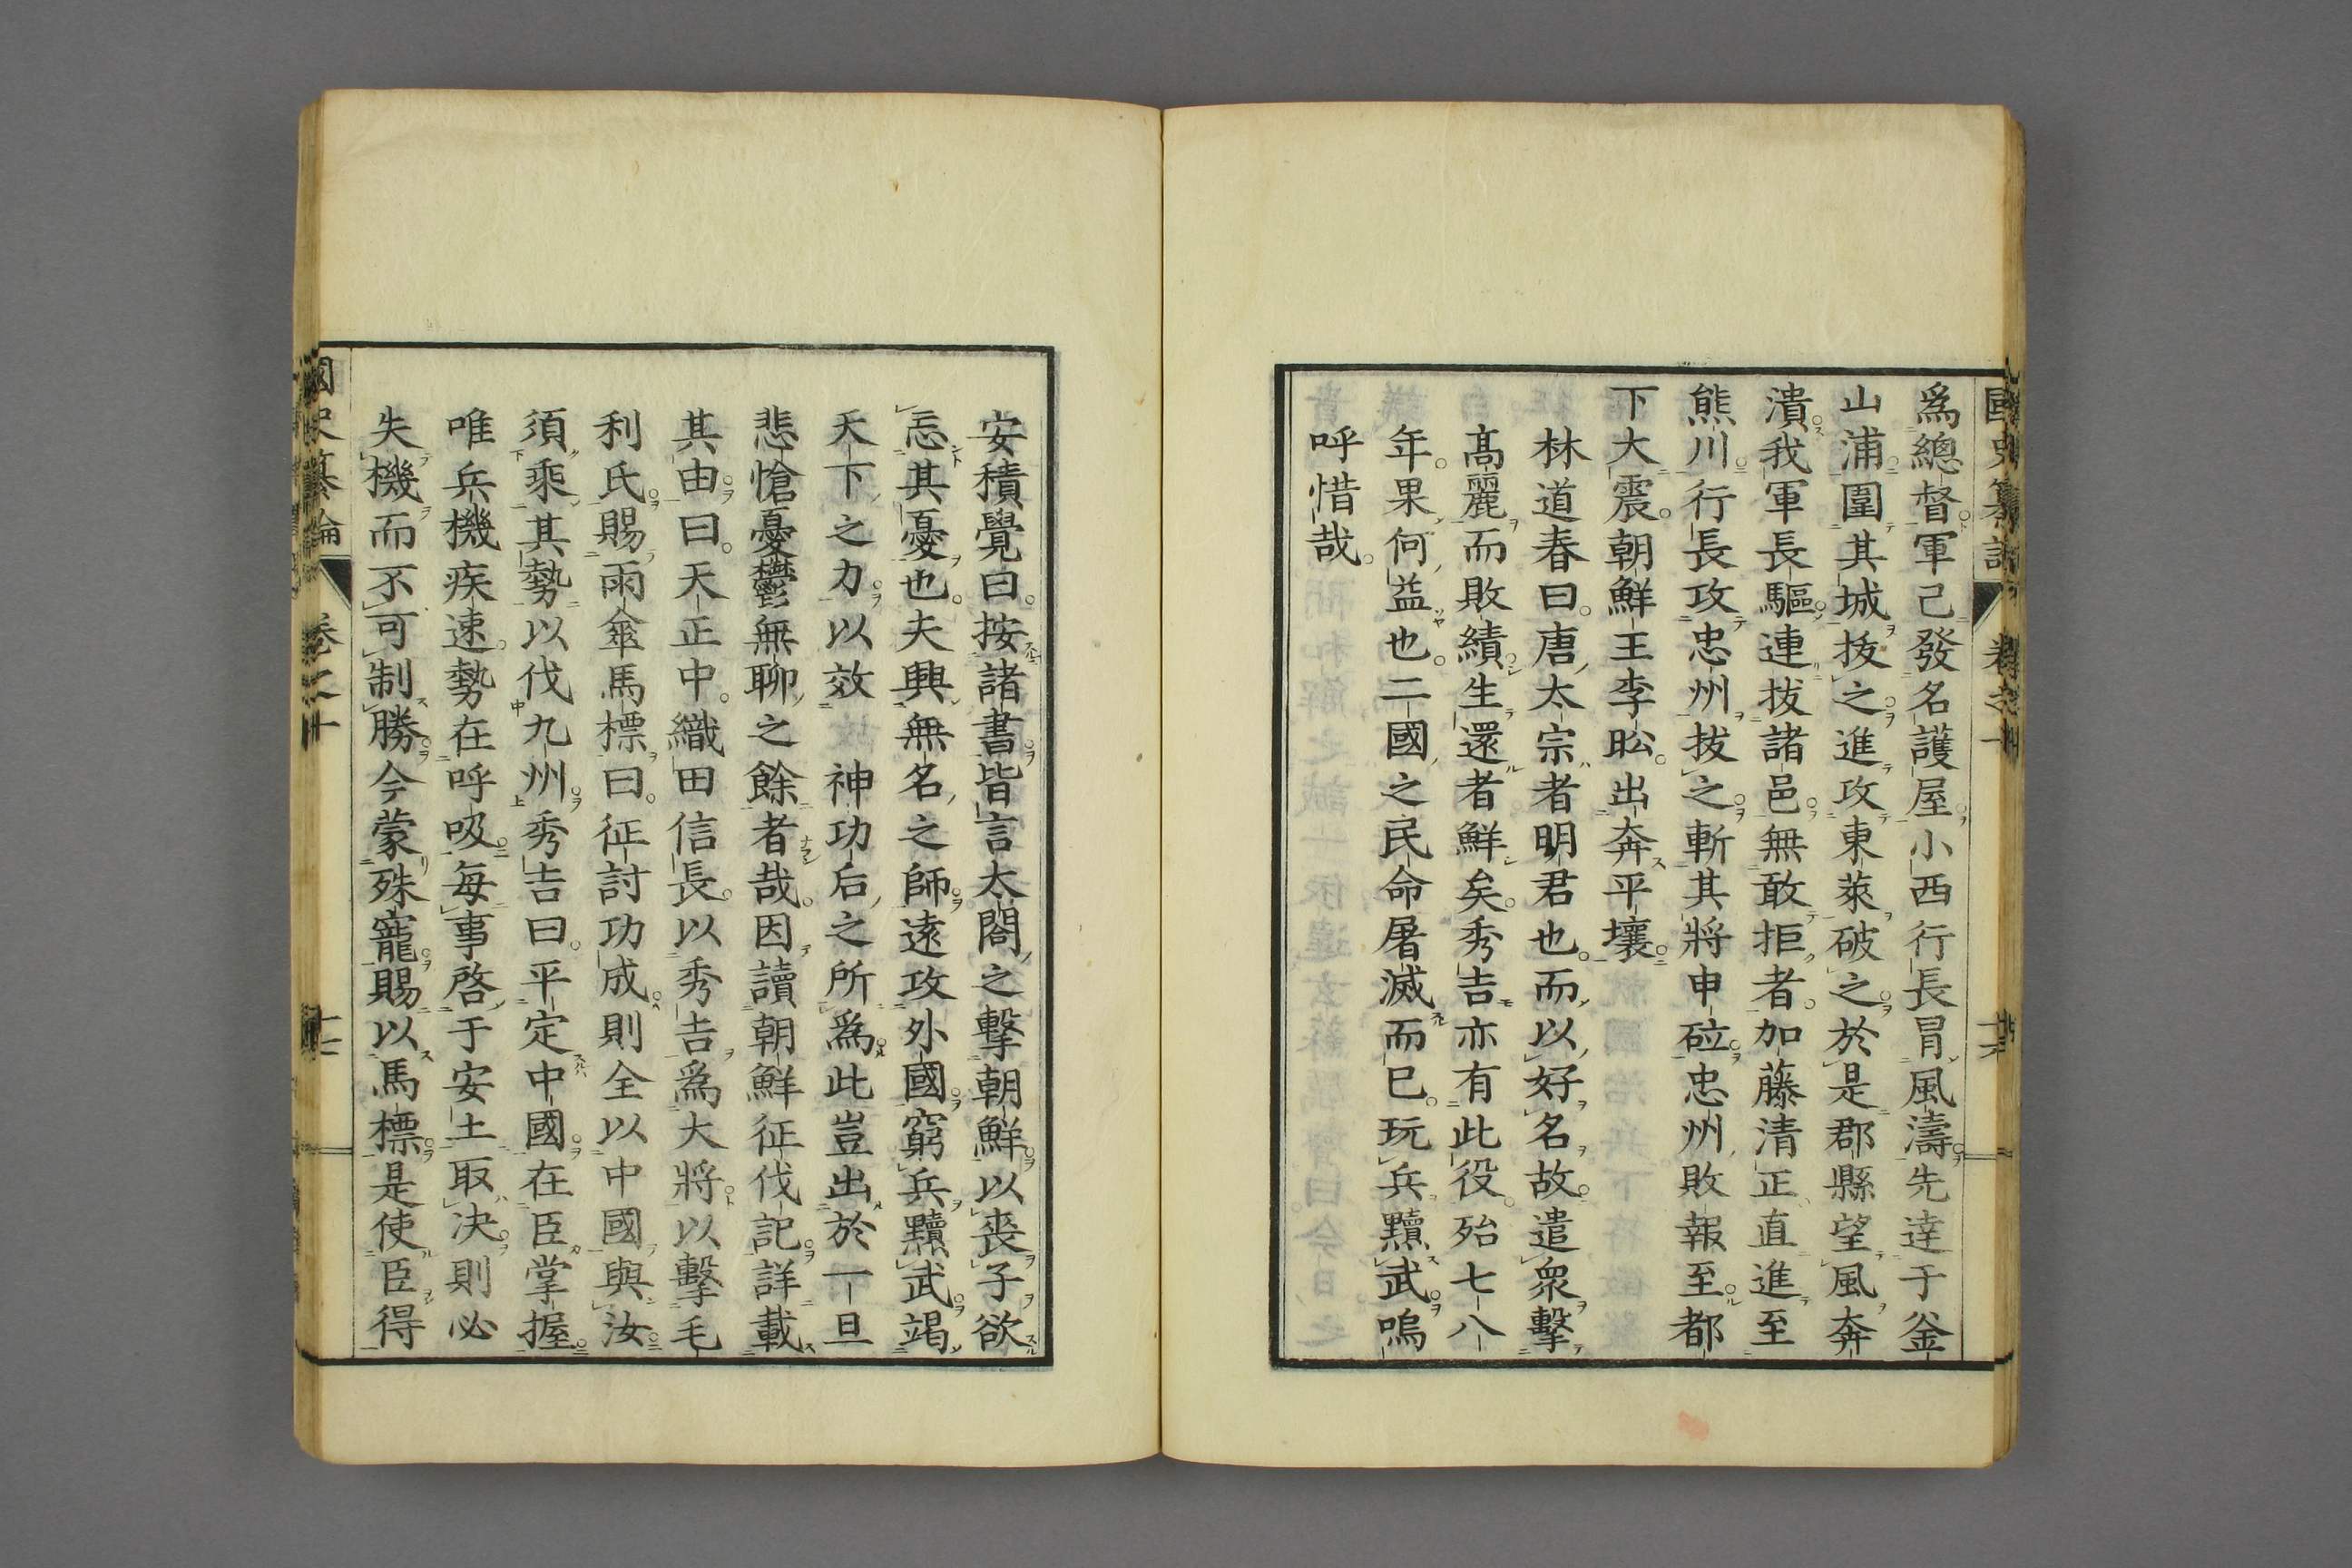 爲總督軍已發名護屋小西行長冒風濤先逹于釜
山浦圍其城拔之進攻東萊破之於是郡縣望風奔
潰我軍長驅連拔諸邑無敢拒者加藤清正直進至
熊川行長攻忠州拔之斬其將申砬忠州敗報至都
下大震朝鮮王李昖出奔平壤
林道春曰唐太宗者明君也而以好名故遣衆擊
高麗而敗績生還者鮮矣秀吉亦有此役殆七八
年果何益也二國之民命屠滅而已玩兵黷武嗚
呼惜哉
安積覺曰按諸書皆言太閤之擊朝鮮以喪子欲
忘其憂也夫興無名之師遠攻外國窮兵黷武竭
天下之力以效 神功后之所爲此豈出於一旦
悲愴憂鬱無聊之餘者哉因讀朝鮮征伐記詳載
其由曰天正中織田信長以秀吉爲大將以擊毛
利氏賜雨傘馬標曰征討功成則全以中國與汝
須乘其勢以伐九州秀吉曰平定中國在臣掌握
唯兵機疾速勢在呼吸每事啓于安土取决則必
失機而不可制勝今蒙殊寵賜以馬標是使臣得
國史纂論 卷之十